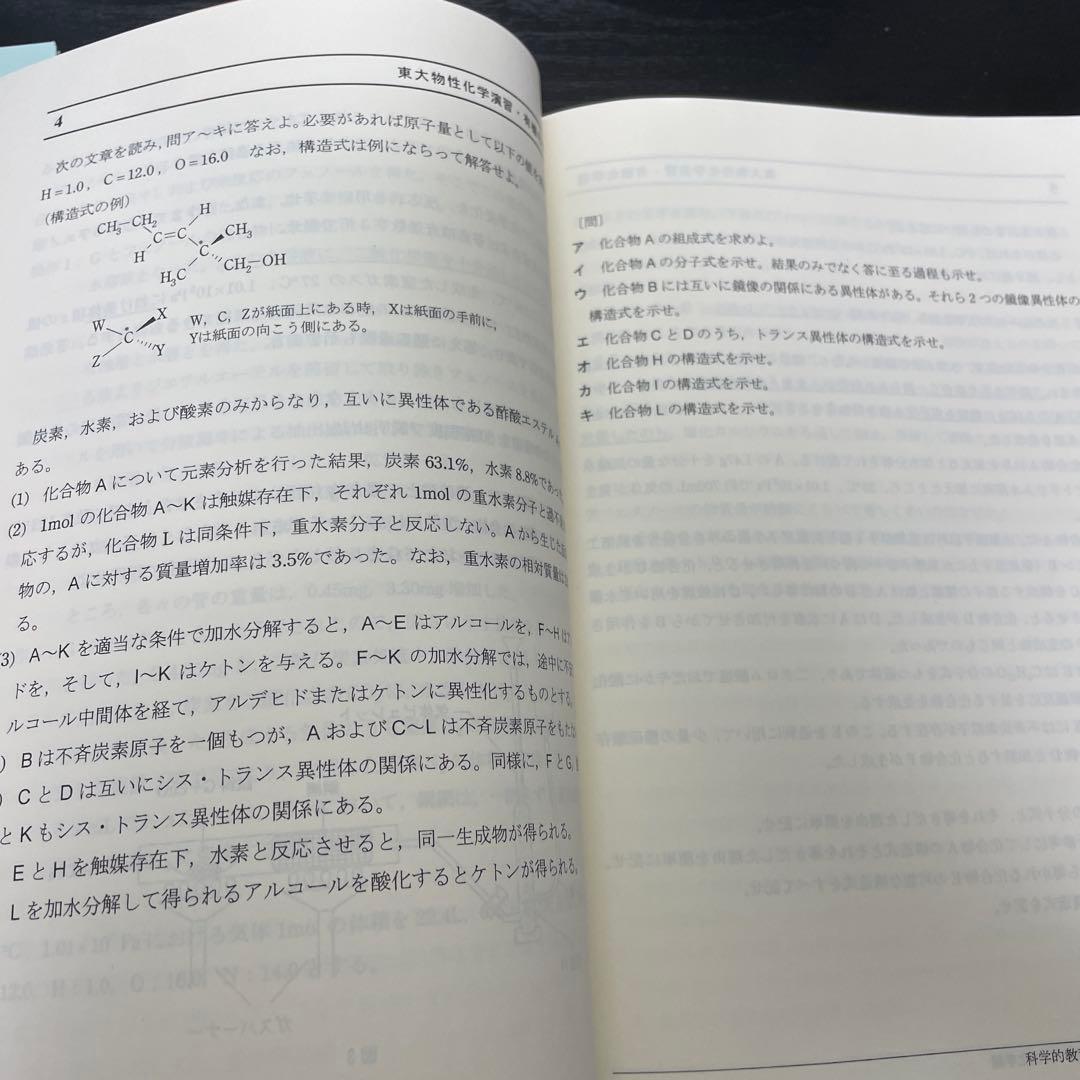 4
東大物性化学演習・有機
次の文章を読み,問ア～キに答えよ。必要があれば原子量として以下の値を
H=1.0, C=12.0, O=16.0 なお,構造式は例にならって解答せよ。
(構造式の例)
CH₃-CH₂ H
C=C CH₃
H C*
H₃C CH₂-OH
W X
C*
Z Y
W, C, Zが紙面上にある時, Xは紙面の手前に,
Yは紙面の向こう側にある。
炭素,水素,および酸素のみからなり,互いに異性体である酢酸エステル
ある。
(1) 化合物Aについて元素分析を行った結果,炭素63.1%,水素8.8%であっ
(2) 1molの化合物A～Kは触媒存在下,それぞれ1molの重水素分子と過不
応するが,化合物Lは同条件下,重水素分子と反応しない。Aから生じた
物の,Aに対する質量増加率は3.5%であった。なお,重水素の相対質量は
る。
3) A～Kを適当な条件で加水分解すると,A～Eはアルコールを,F～Hは
ドを,そして,I～Kはケトンを与える。F～Kの加水分解では,途中に不
ルコール中間体を経て,アルデヒドまたはケトンに異性化するものとする。
) Bは不斉炭素原子を一個もつが,AおよびC～Lは不斉炭素原子をもた
) CとDは互いにシス・トランス異性体の関係にある。同様に,FとG,
とKもシス・トランス異性体の関係にある。
EとHを触媒存在下,水素と反応させると,同一生成物が得られる。
Lを加水分解して得られるアルコールを酸化するとケトンが得られる。
〔問〕
ア 化合物Aの組成式を求めよ。
イ 化合物Aの分子式を示せ。結果のみでなく答に至る過程も示せ。
ウ 化合物Bには互いに鏡像の関係にある異性体がある。それら2つの鏡像異性体の
構造式を示せ。
エ 化合物CとDのうち,トランス異性体の構造式を示せ。
オ 化合物Hの構造式を示せ。
カ 化合物Iの構造式を示せ。
キ 化合物Lの構造式を示せ。
科学的教